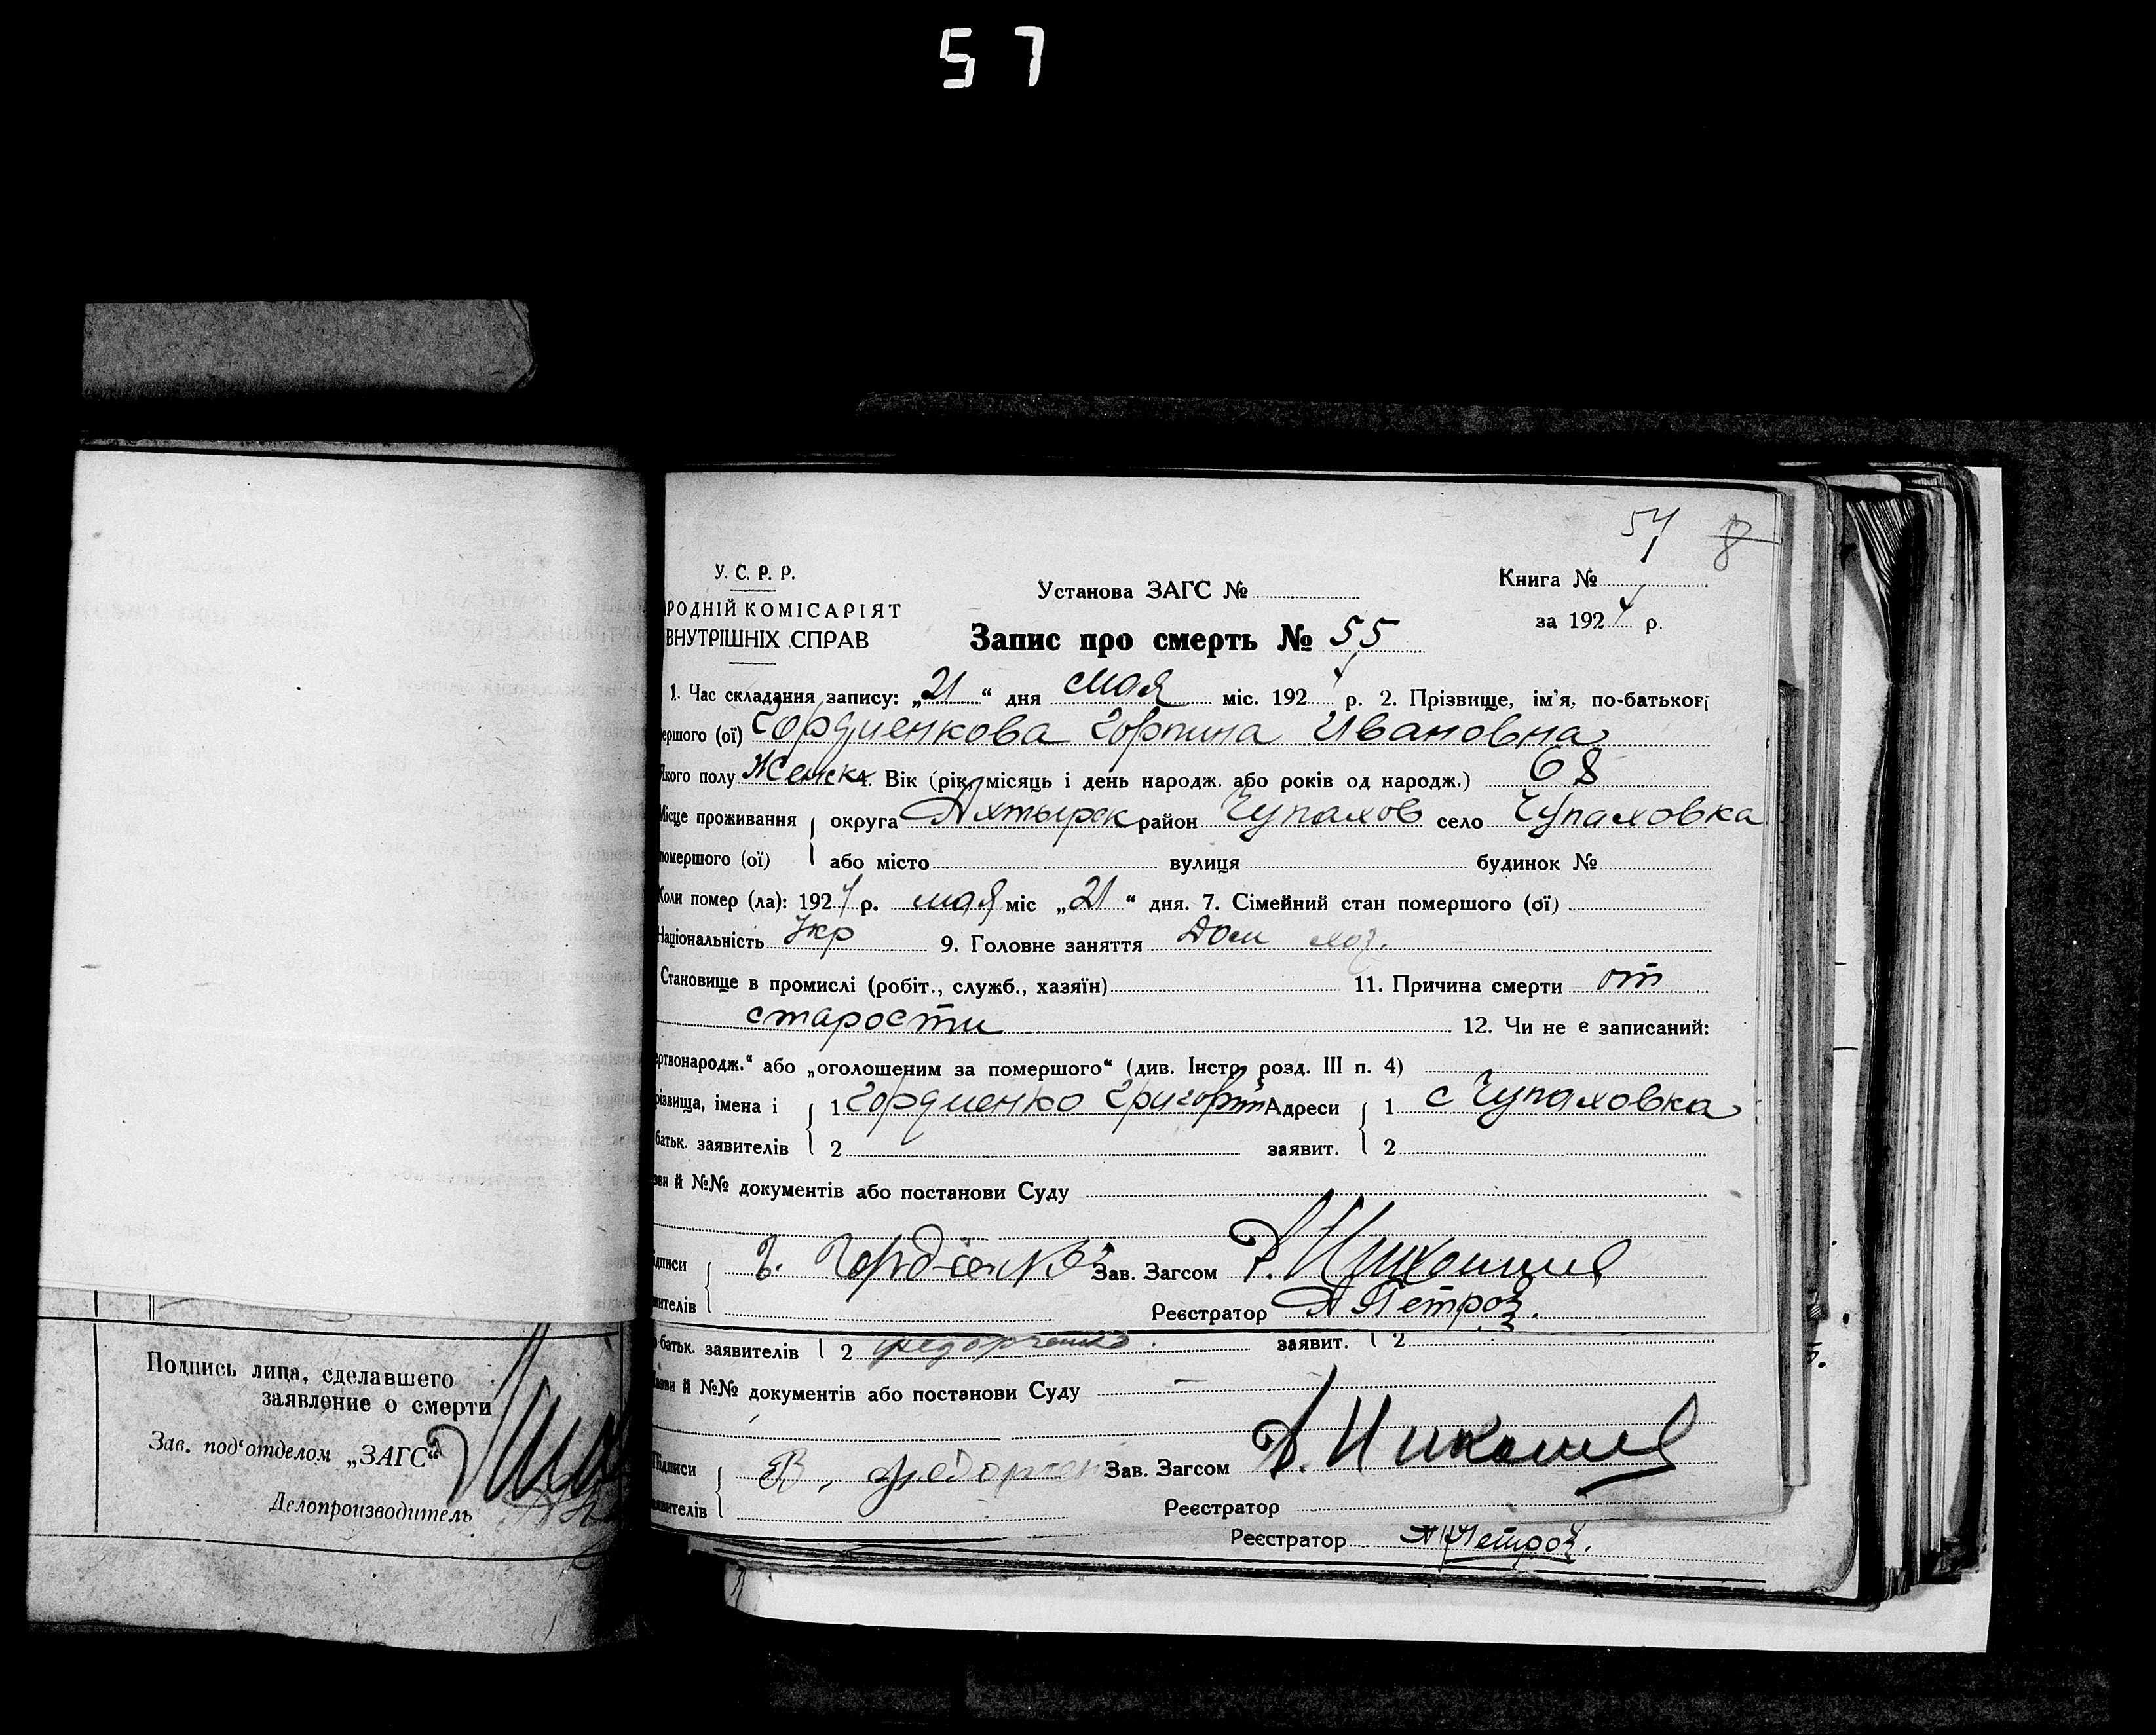 57
57 8
У. С. Р. Р.
РОДНІЙ КОМІСАРІЯТ
ВНУТРІШНІХ СПРАВ
Установа ЗАГС №
Книга №
за 1924 р.
Запис про смерть № 55
1. Час складання запису: „21“ дня мая міс. 1924 р. 2. Прізвище, ім'я, по-батькові
ершого (ої) Гордиенкова Горпина Ивановна
якого полу Женск 4. Вік (рік, місяць і день народж. або років од народж.) 68
Місце проживання округа Ахтырск район Чупахов село Чупаховка
помершого (ої) або місто вулиця будинок №
Коли помер (ла): 1924 р. мая міс „21“ дня. 7. Сімейний стан помершого (ої)
Національність Укр 9. Головне заняття Дом хоз.
Становище в промислі (робіт., служб., хазяїн) 11. Причина смерти от
старости 12. Чи не є записаний:
ертвонародж.“ або „оголошеним за помершого“ (див. Інстр. розд. III п. 4)
різвища, імена і 1 Гордиенко Григорій Адреси 1 с Чупаховка
батьк. заявителів 2 заявит. 2
зви й №№ документів або постанови Суду
ідписи Г. Гордіенко Зав. Загсом
вителів Реєстратор А Петров.
батьк. заявителів 2 Федорченко. заявит. 2
азви й №№ документів або постанови Суду —
Підписи Зав. Загсом
аявителів Реєстратор
Реєстратор А Петров.
Подпись лица, сделавшего
заявление о смерти
Зав. под'отделом „ЗАГС“
Делопроизводитель